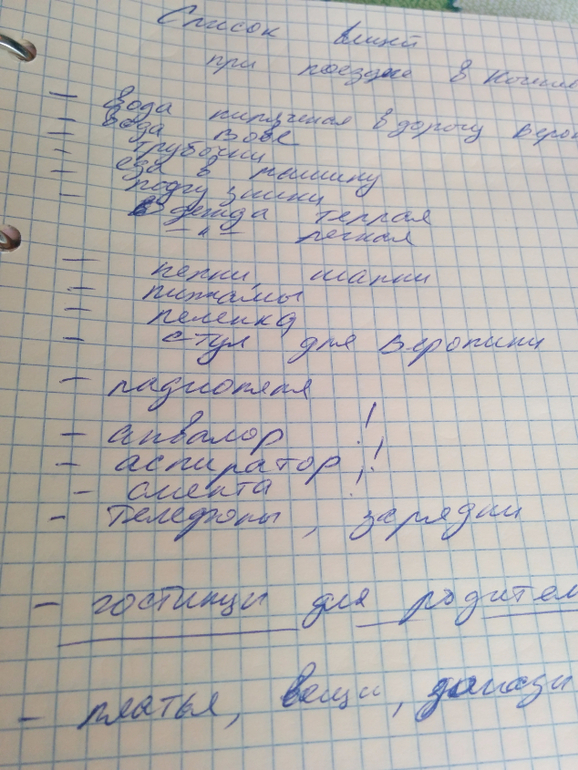 Список
при поездке в
- вода кипяченая в дорогу
- вода Вове
- трубочки
- еда в машину
- подгузники
одежда теплая
-"- легкая
- кепки, шапки
- пижамы
- пеленка
- стул для Вероники
- радионяня
- аквалор !
- аспиратор !
- смекта !
- телефоны, зарядки
- гостинцы для
- платья, вещи,